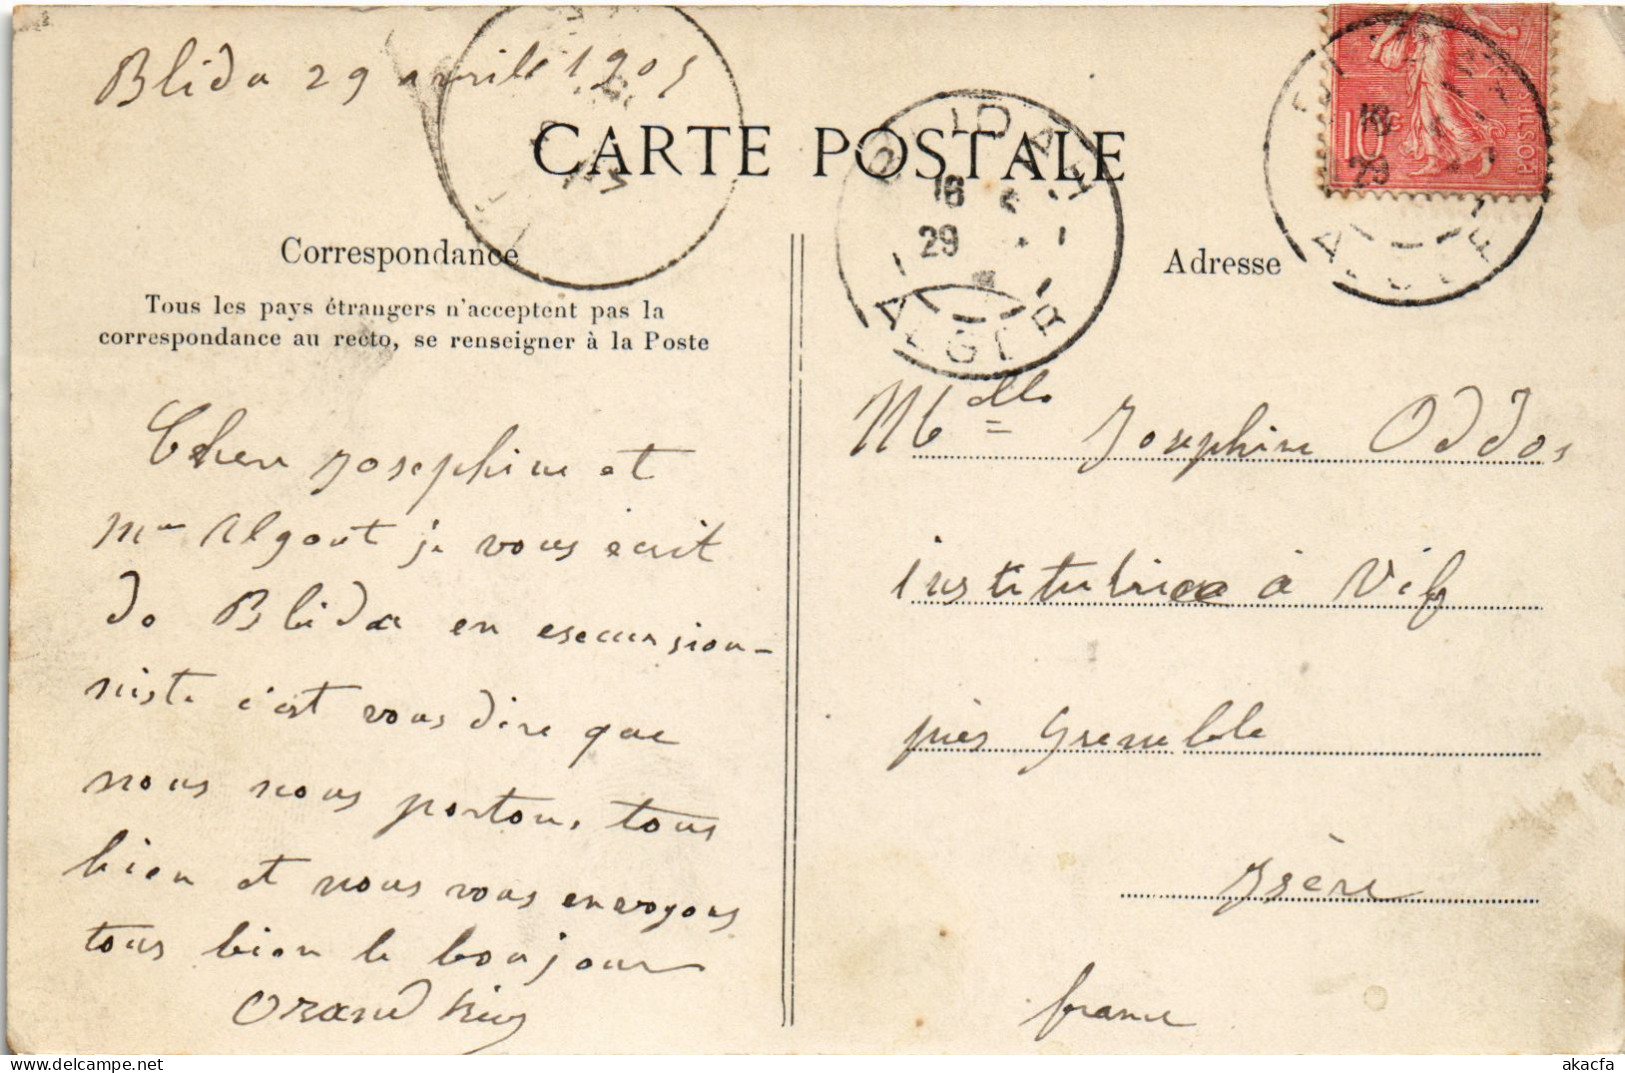 Blida 29 avril 1905
CARTE POSTALE
BLIDAH
16
29
ALGER
10c
POSTES
16
29
ALGER
Correspondance
Tous les pays étrangers n'acceptent pas la
correspondance au recto, se renseigner à la Poste
Adresse
Cher Josephine et
Mme Algout je vous écrit
de Blida en escursion-
niste c'est vous dire que
nous nous portons tous
bien et nous vous envoyons
tous bien le bonjour
Mdlle Josephine Oddos
institutrice à Vif
près Grenoble
Isère
france
akacfa.com